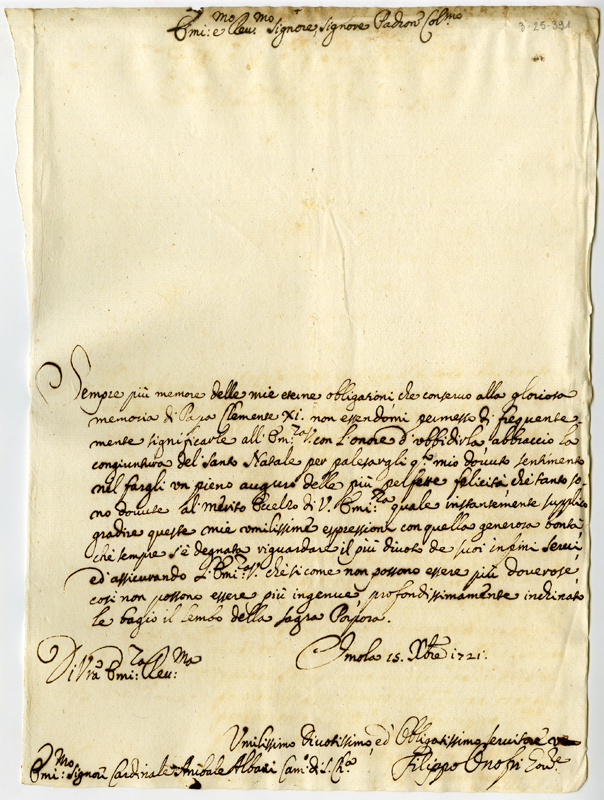 Em.mo: e Rev.mo Signore, Signore Padron Col.mo
3-25-391
Sempre più memore delle mie eterne obligazioni che conservo alla gloriosa
memoria di Papa Clemente XI. non essendomi permesso di frequente,
mente significarle all'Em.za V. con l'onore d'ubbidirla, abbraccio la
congiuntura del Santo Natale per palesargli q.to mio dovuto sentimento
nel fargli un pieno augurio delle più perfette felicità che tanto so,
no dovute al merito Eccelso di V. Em.za quale instantemente supplico
gradire queste mie umilissime espressioni con quella generosa bontà
che sempre s'è degnata riguardare il più divoto de suoi infimi servi,
ed assicurando l'Em.za V. che si come non possono essere più doverose,
cosi non possono essere più ingenue, profondissimamente inchinato
le bagio il lembo della sagra Porpora.
Di V.ra Em.za Rev.ma
Imola 15. Xbre 1721.
Umilissimo Divotissimo, ed Obligatissimo servitore
Em.mo: Signor Cardinale Anibale Albani Cam.o di S. Ch.a
Filippo Onofri